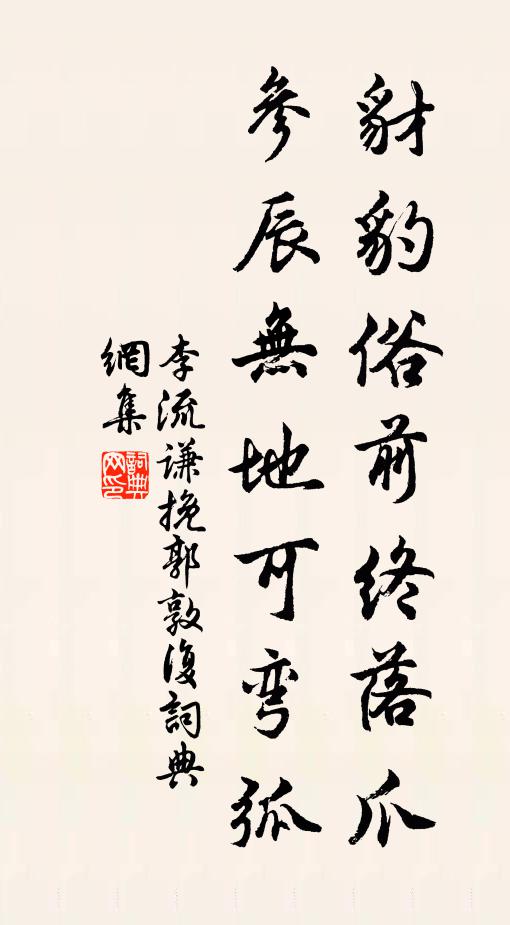 豺豹俗前終落爪
參辰無地可弯弧
李流谦挽郭敦復詞典
網集
詞典
网印